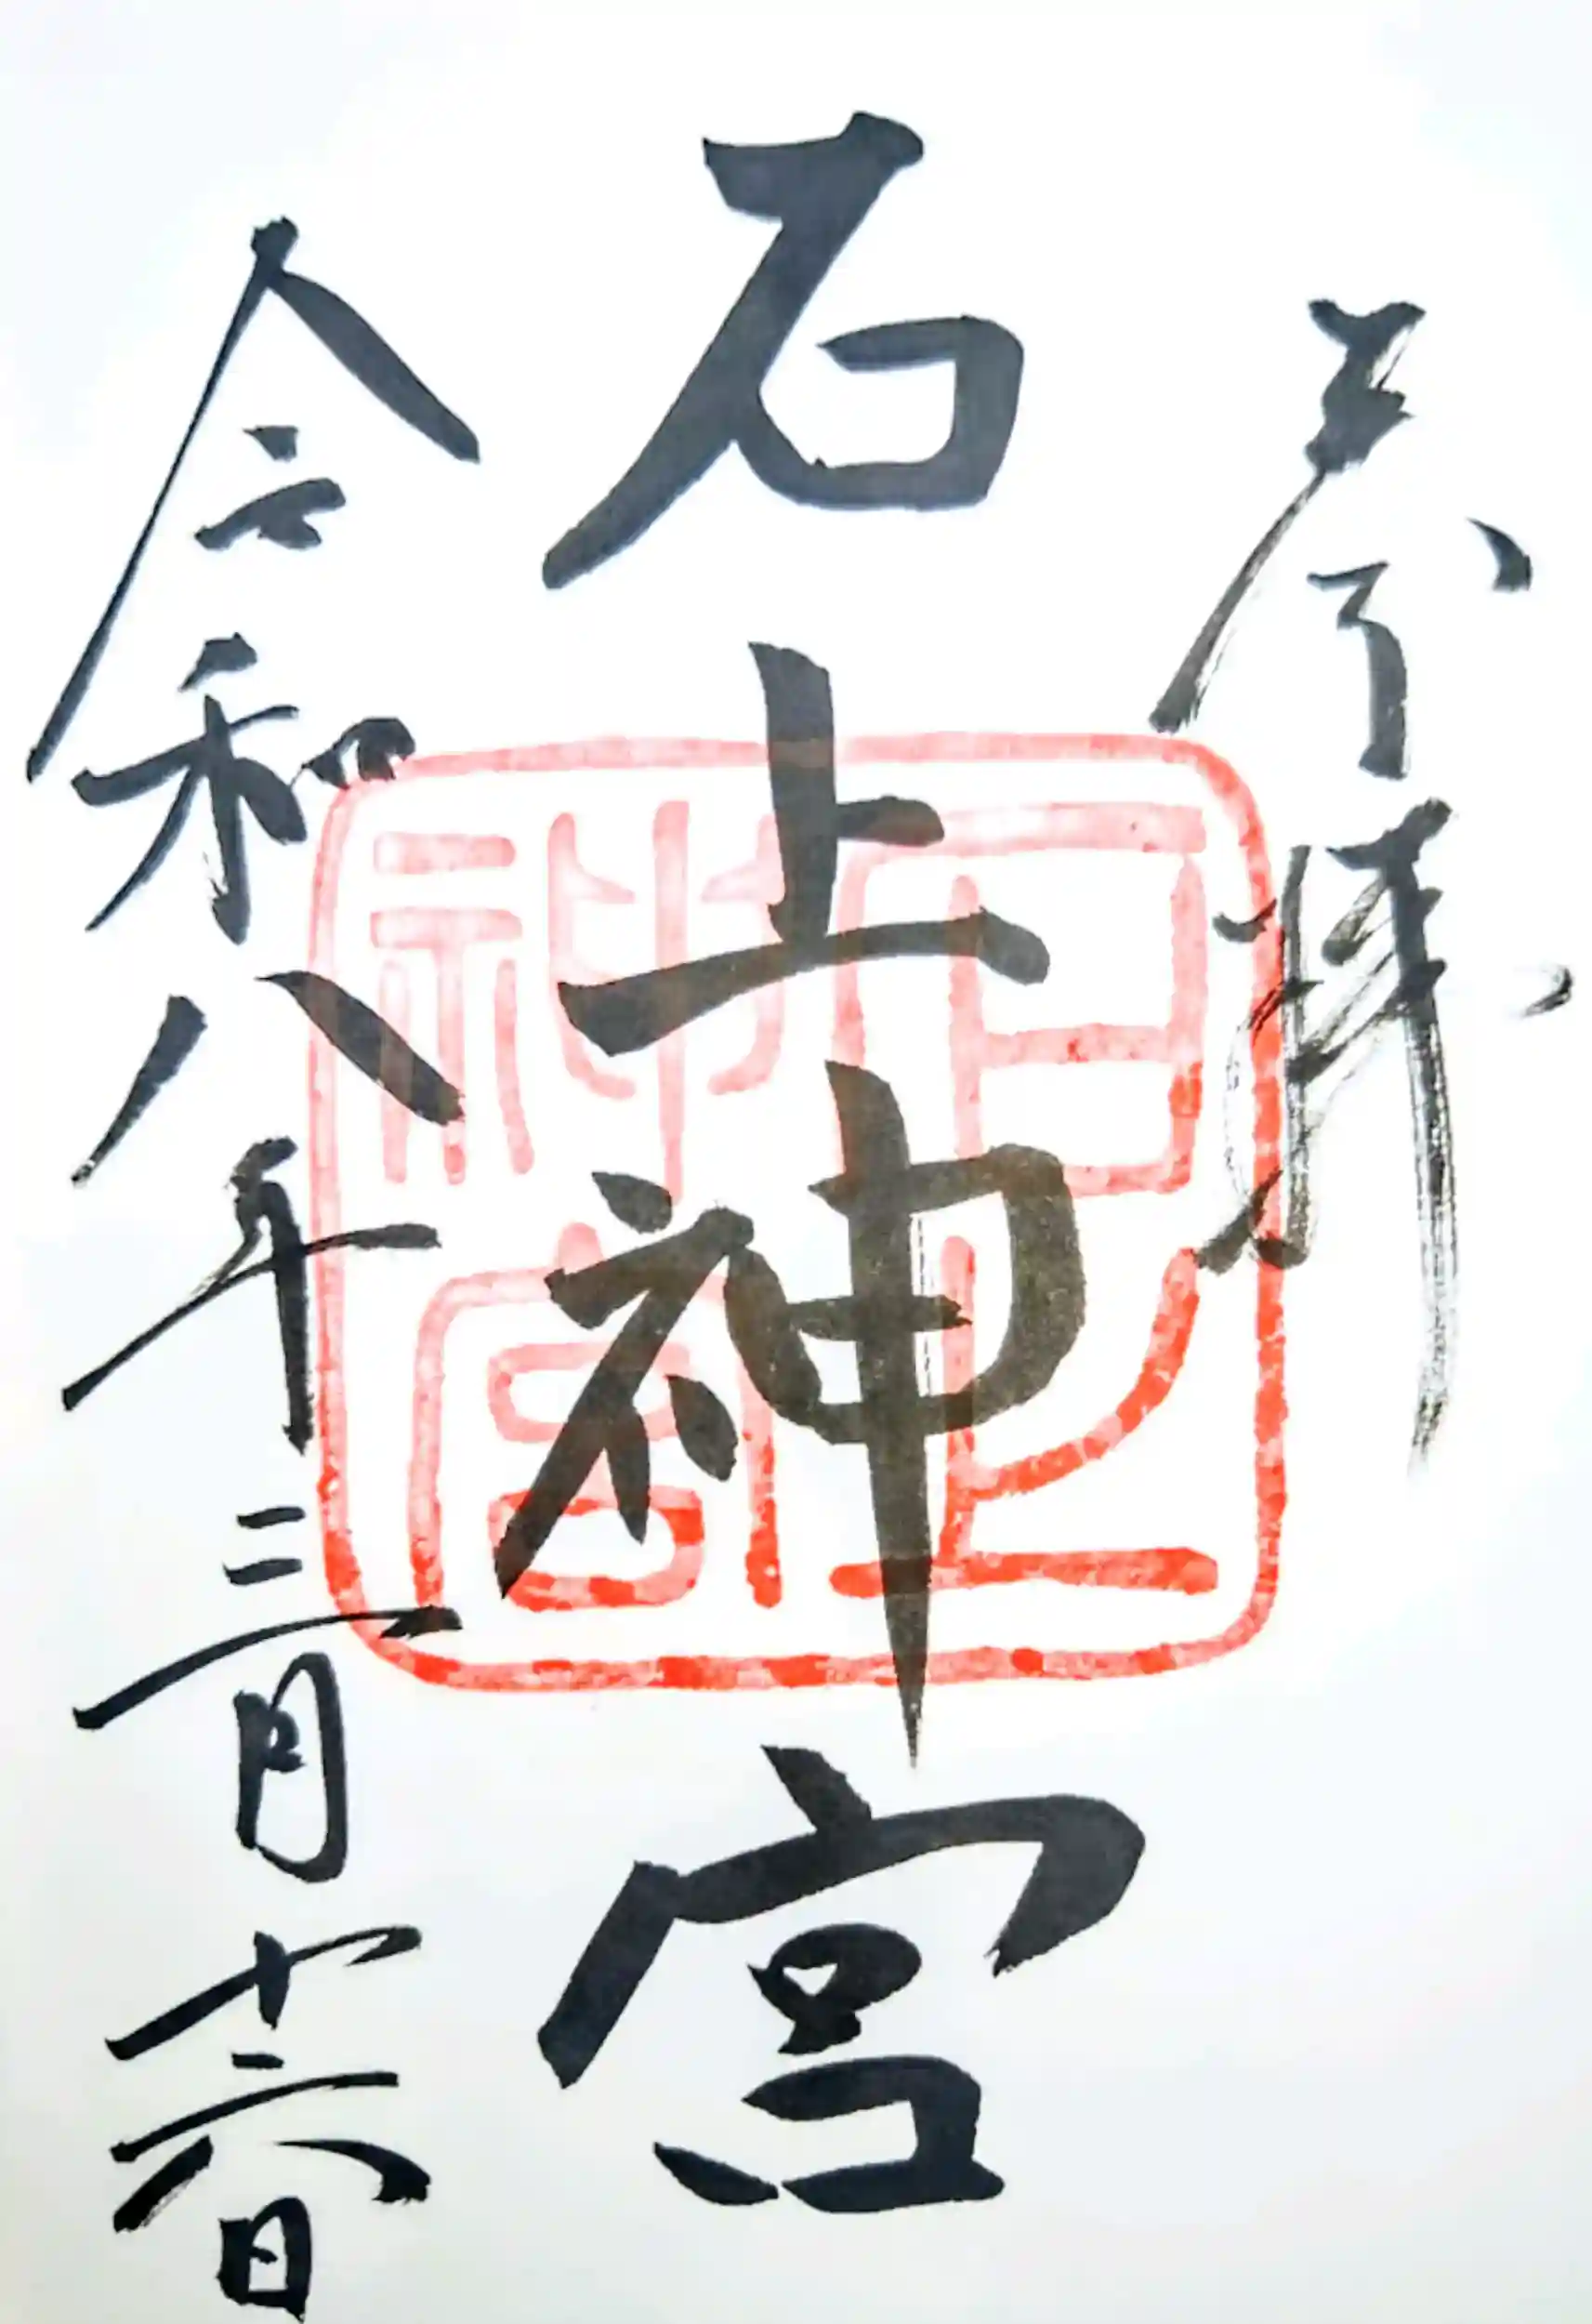 奉拝
石上神宮
石上神宮
令和八年三月十六日